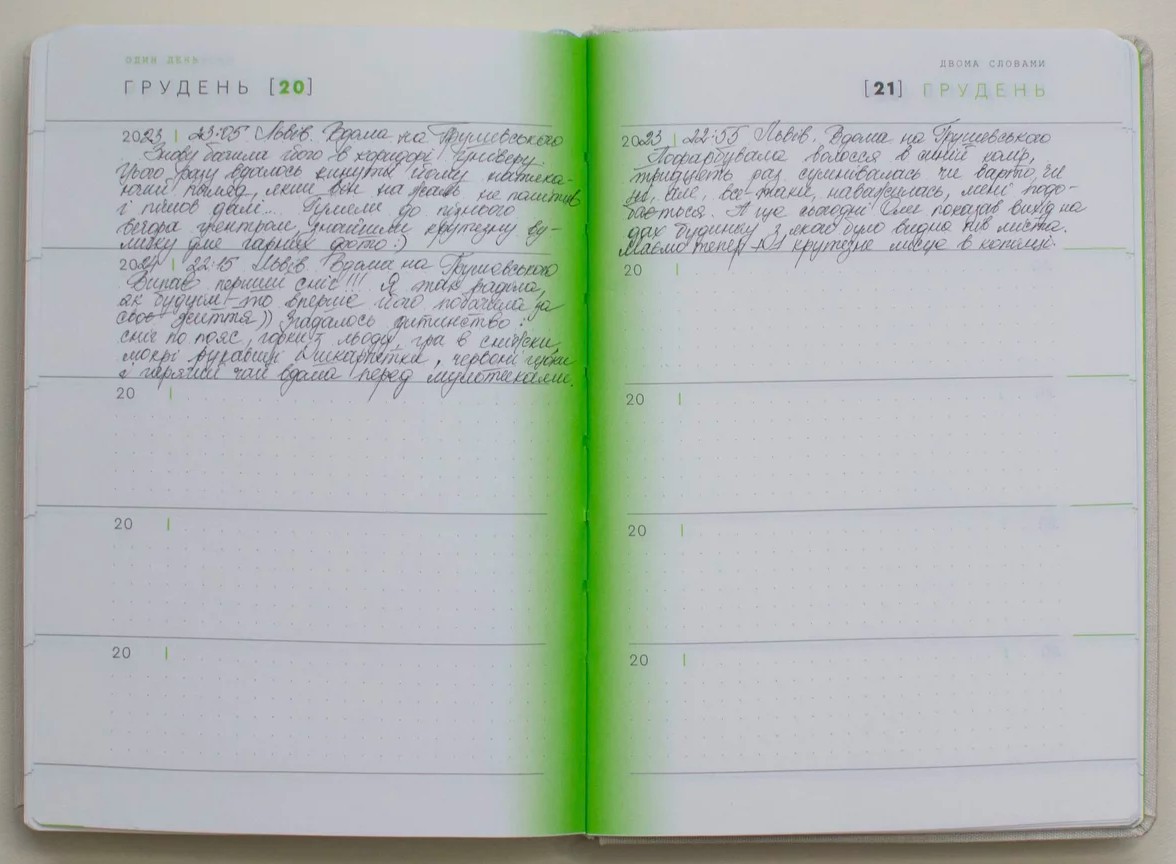 ОДИН ДЕНЬ
ГРУДЕНЬ [20]
2023 | 23:05 Львів. Вдома на Грушевського
Знову бачила його в коридорі універу.
Цього разу вдалось кинути йому натяка-
ючий погляд, який він на жаль не помітив
і пішов далі... Гуляли до пізнього
вечора центром, знайшли крутезну ву-
личку для гарних фото :)
2024 | 22:15 Львів. Вдома на Грушевського
Випав перший сніг!!! Я так раділа,
як будучи вперше його побачила за
своє життя)) Згадалось дитинство:
сніг по пояс, гірки з льоду, гра в сніжки,
мокрі рукавиці шкарпетки, червоні щоки
і гарячий чай вдома перед мультиками.
20 |
20 |
20 |
ДВОМА СЛОВАМИ
[21] ГРУДЕНЬ
2023 | 22:55 Львів. Вдома на Грушевського
Пофарбувала волосся в синій колір,
тридцять раз сумнівалась чи варто, чи
ні, але, все таки, наважилась, мені подо-
бається. А ще сьогодні Олег показав вихід на
дах будинку з якого було видно пів міста.
Маємо тепер +1 крутезне місце в копилці.
20 |
20 |
20 |
20 |